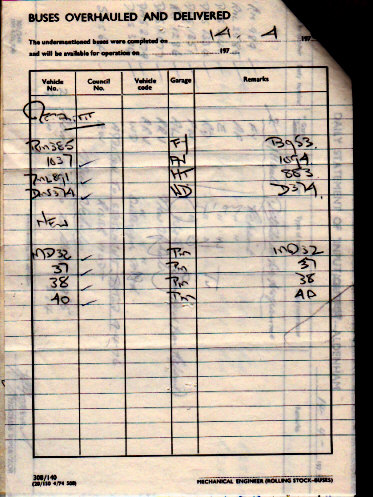 BUSES OVERHAULED AND DELIVERED
The undermentioned buses were completed on 14. 4 197
and will be available for operation on 197
Vehicle No. Council No. Vehicle code Garage Remarks
RM385 FY B953.
1037 ✓ 1094
✓ HT 883
✓ ND D374.
NEW
MD32 ✓ PM MD32
37 ✓ PM 37
38 ✓ PM 38
40 ✓ PM 40
308/140
(20/150 4/74 50B)
MECHANICAL ENGINEER (ROLLING STOCK—BUSES)